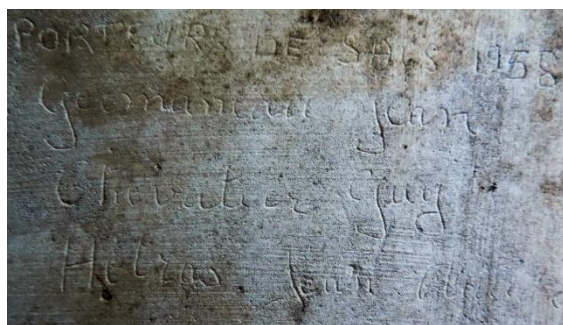 PORTEURS DE SACS 1958
Germaneau Jean
Chevalier Guy
Hélras Jean